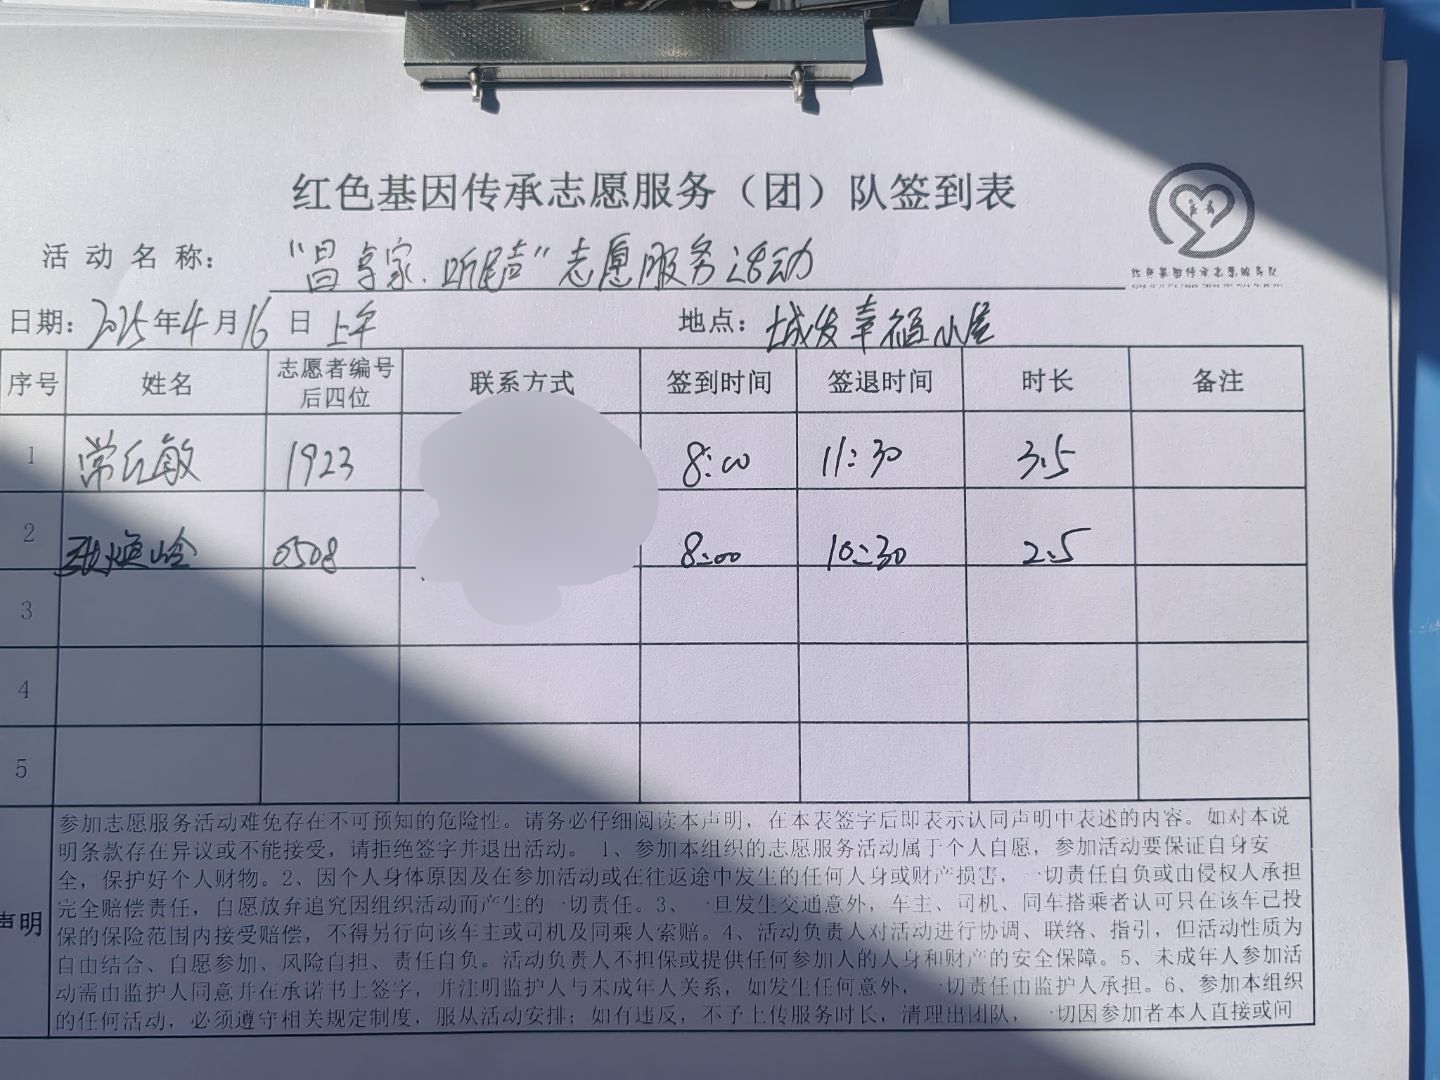 红色基因传承志愿服务（团）队签到表
活动名称：“昌享家.听民声”志愿服务活动
日期：2025年4月16日上午 地点：城发幸福小屋
序号 姓名 志愿者编号后四位 联系方式 签到时间 签退时间 时长 备注
1 常丘敏 1923 8:00 11:30 3.5
2 张焕岭 0508 8:00 10:30 2.5
3
4
5
声明
参加志愿服务活动难免存在不可预知的危险性。请务必仔细阅读本声明，在本表签字后即表示认同声明中表述的内容。如对本说
明条款存在异议或不能接受，请拒绝签字并退出活动。1、参加本组织的志愿服务活动属于个人自愿，参加活动要保证自身安
全，保护好个人财物。2、因个人身体原因及在参加活动或在往返途中发生的任何人身或财产损害，一切责任自负或由侵权人承担
完全赔偿责任，自愿放弃追究因组织活动而产生的一切责任。3、一旦发生交通意外，车主、司机、同车搭乘者认可只在该车已投
保的保险范围内接受赔偿，不得另行向该车主或司机及同乘人索赔。4、活动负责人对活动进行协调、联络、指引，但活动性质为
自由结合、自愿参加、风险自担、责任自负。活动负责人不担保或提供任何参加人的人身和财产的安全保障。5、未成年人参加活
动需由监护人同意并在承诺书上签字，并注明监护人与未成年人关系，如发生任何意外，一切责任由监护人承担。6、参加本组织
的任何活动，必须遵守相关规定制度，服从活动安排；如有违反，不予上传服务时长，清理出团队，一切因参加者本人直接或间